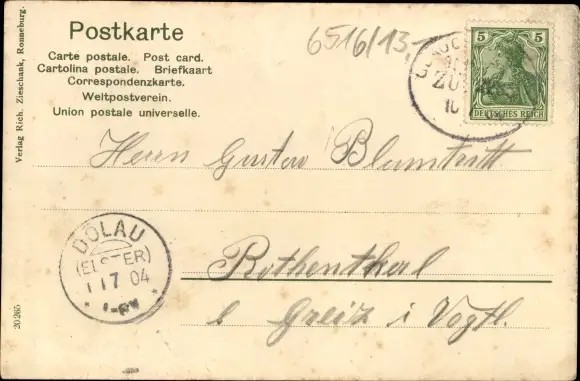 Postkarte
Carte postale. Post card.
Cartolina postale. Briefkaart
Correspondenzkarte.
Weltpostverein.
Union postale universelle.
Verlag Rich. Zieschank, Ronneburg.
20265
6516/13,-
ZUG
10
5 5
DEUTSCHES REICH
Herrn Gustav Blumtritt
Rothenthal
b Greiz i Vogtl.
DÖLAU
(ELSTER)
1 7 04